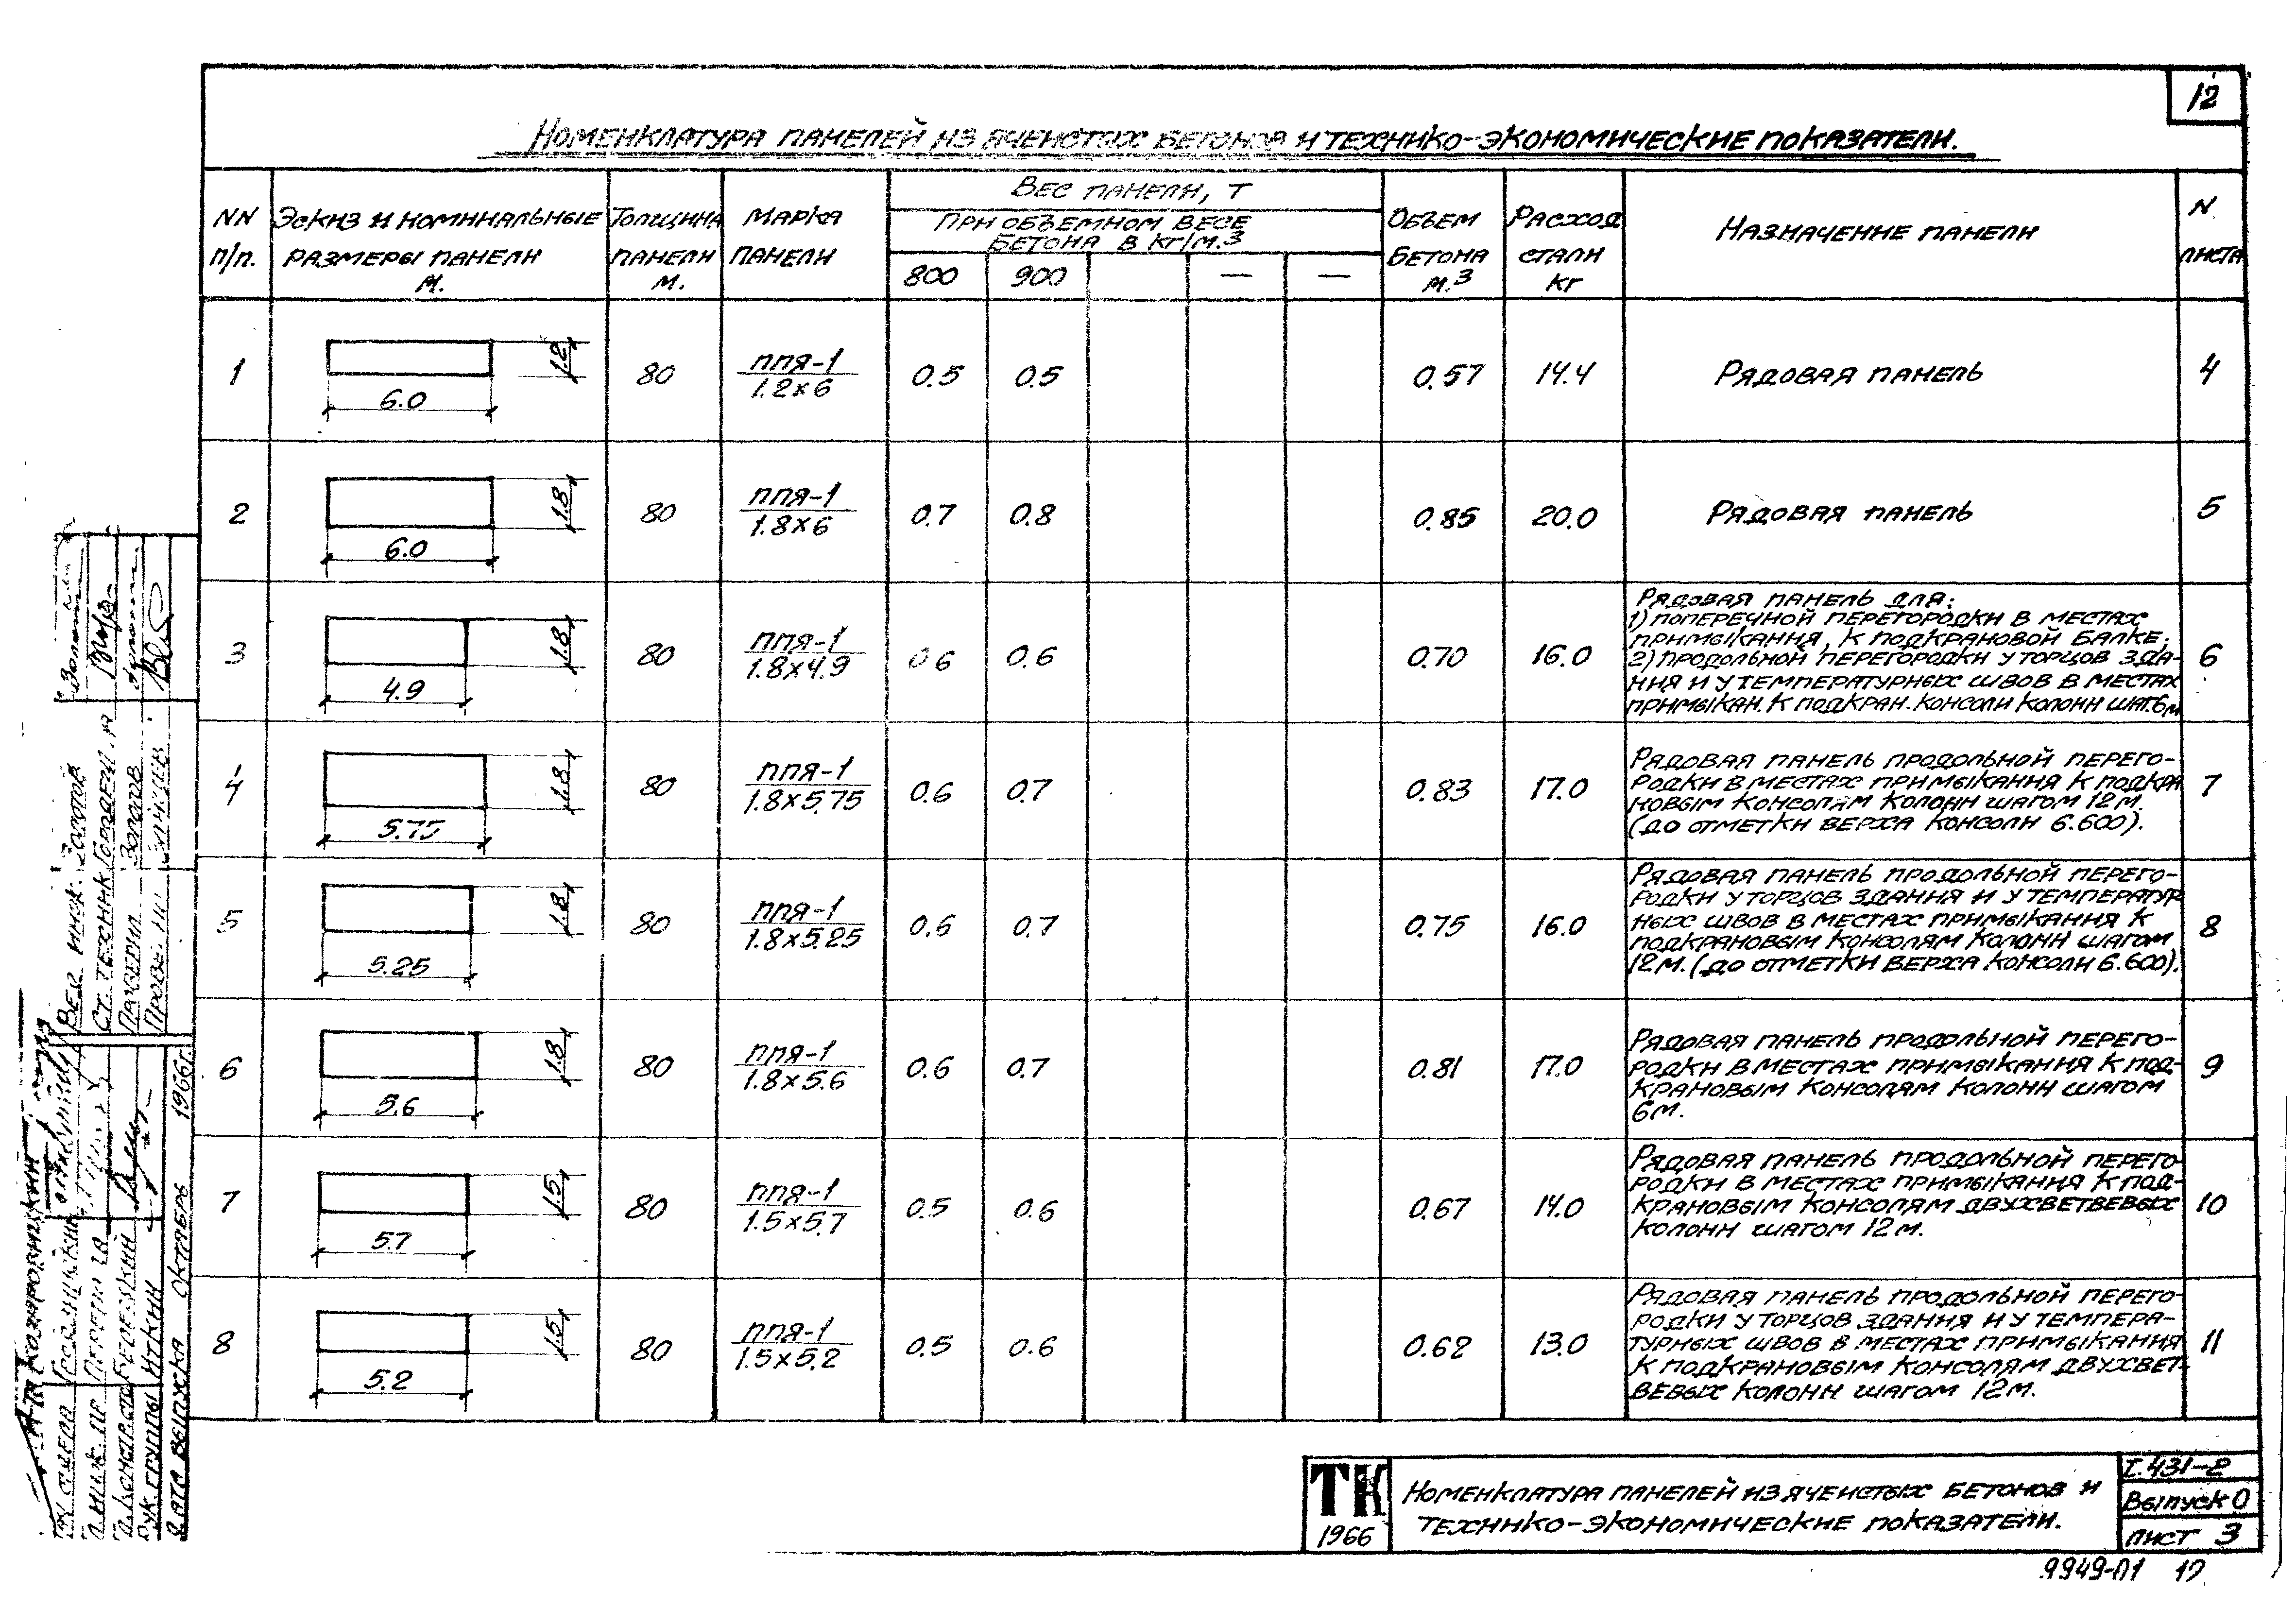 12
Номенклатура панелей из ячеистых бетонов и технико-экономические показатели.
NN п/п.
Эскиз и номинальные размеры панели м.
Толщина панели м.
Марка панели
Вес панели, т
при объемном весе бетона в кг/м.3
800 900 — —
Объем бетона м.3
Расход стали кг
Назначение панели
N листа
1 6.0 1.2 80 ППЯ-1 1.2×6 0.5 0.5 0.57 14.4 Рядовая панель 4
2 6.0 1.8 80 ППЯ-1 1.8×6 0.7 0.8 0.85 20.0 Рядовая панель 5
3 4.9 1.8 80 ППЯ-1 1.8×4.9 0.6 0.6 0.70 16.0
Рядовая панель для:
1) поперечной перегородки в местах
примыкания, к подкрановой балке;
2) продольной перегородки у торцов зда-
ния и у температурных швов в местах
примыкан. к подкран. консоли колонн шаг. 6м
6
4 5.75 1.8 80 ППЯ-1 1.8×5.75 0.6 0.7 0.83 17.0
Рядовая панель продольной перего-
родки в местах примыкания к подкра
новым консолям колонн шагом 12 м.
(до отметки верха консоли 6.600).
7
5 5.25 1.8 80 ППЯ-1 1.8×5.25 0.6 0.7 0.75 16.0
Рядовая панель продольной перего-
родки у торцов здания и у температур
ных швов в местах примыкания к
подкрановым консолям колонн шагом
12 м. (до отметки верха консоли 6.600).
8
6 5.6 1.8 80 ППЯ-1 1.8×5.6 0.6 0.7 0.81 17.0
Рядовая панель продольной перего-
родки в местах примыкания к под-
крановым консолям колонн шагом
6м.
9
7 5.7 1.5 80 ППЯ-1 1.5×5.7 0.5 0.6 0.67 14.0
Рядовая панель продольной перего
родки в местах примыкания к под-
крановым консолям двухветвевых
колонн шагом 12 м.
10
8 5.2 1.5 80 ППЯ-1 1.5×5.2 0.5 0.6 0.62 13.0
Рядовая панель продольной перего-
родки у торцов здания и у темпера-
турных швов в местах примыкания
к подкрановым консолям двухвет-
вевых колонн шагом 12 м.
11
ТК
1966
Номенклатура панелей из ячеистых бетонов и
технико-экономические показатели.
I.431-2
Выпуск 0
лист 3
9949-01 12
Ст. техник
Рук. группы Иткин
Дата выпуска октябрь 1966г.